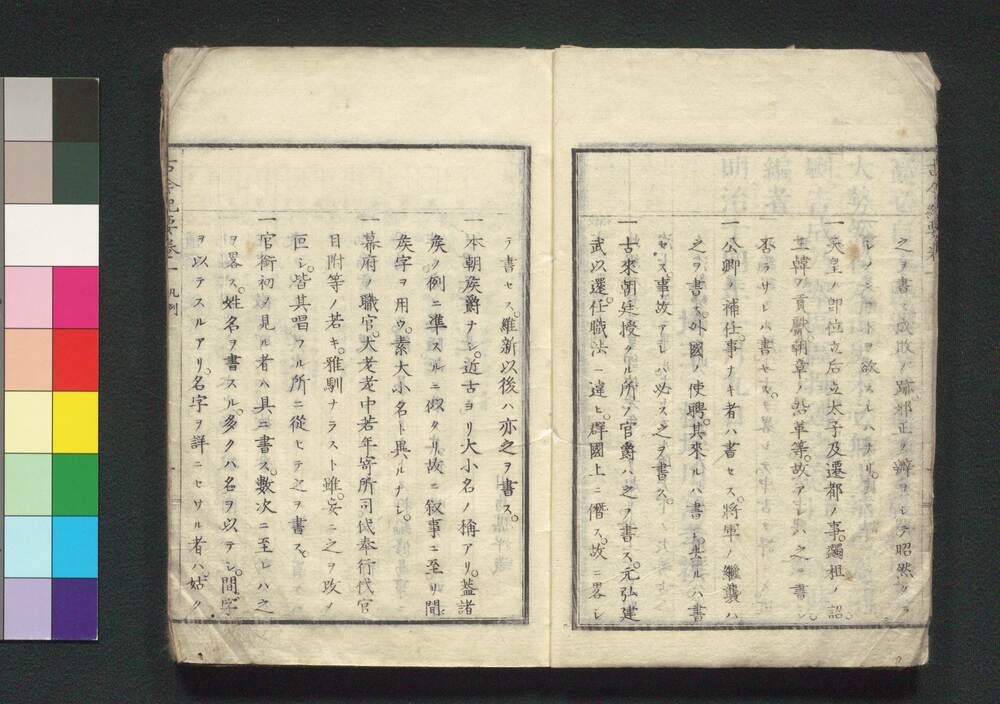 之ヲ書シ成敗ノ跡邪正ノ辨ヲシテ昭然タラ
シメンコトヲ欲スレハナリ。
一天皇ノ即位立后立太子及遷都ノ事。蠲租ノ詔。
三韓ノ貢獻朝章ノ沿革等。故アレハ之ヲ書シ。
否ラサレハ書セス。
一公卿ノ補任。事ナキ者ハ書セス。將軍ノ繼襲ハ
之ヲ書ス。外國ノ使聘。其來ルハ書シ去ルハ書
セス。事故アレバ必ス之ヲ書ス。
一古來朝廷授クル所ノ官爵ハ之ヲ書ス。元弘建
武以還。任職法ニ違ヒ。群國上ニ僭ス。故ニ畧シ
テ書セス。維新以後ハ亦之ヲ書ス。
一本朝矦爵ナシ。近古ヨリ大小名ノ稱アリ。蓋諸
矦ノ例ニ準スルニ似タリ。故ニ敘事ニ至リ間〻
矦字ヲ用ウ。素大小名ト異ルナシ。
一幕府ノ職官。大老老中若年寄所司代奉行代官
目附等ノ若キ。雅馴ナラスト雖。妄ニ之ヲ改メ
ス。皆其唱フル所ニ從ヒテ之ヲ書ス。
一官銜初メ見ル者ハ具ニ書ス。數次ニ至レハ之
ヲ畧ス。姓名ヲ書スル。多クハ名ヲ以テシ。間〻字
ヲ以テスルアリ。名字ヲ詳ニセサル者ハ。姑ク
古今紀要卷一 凡例